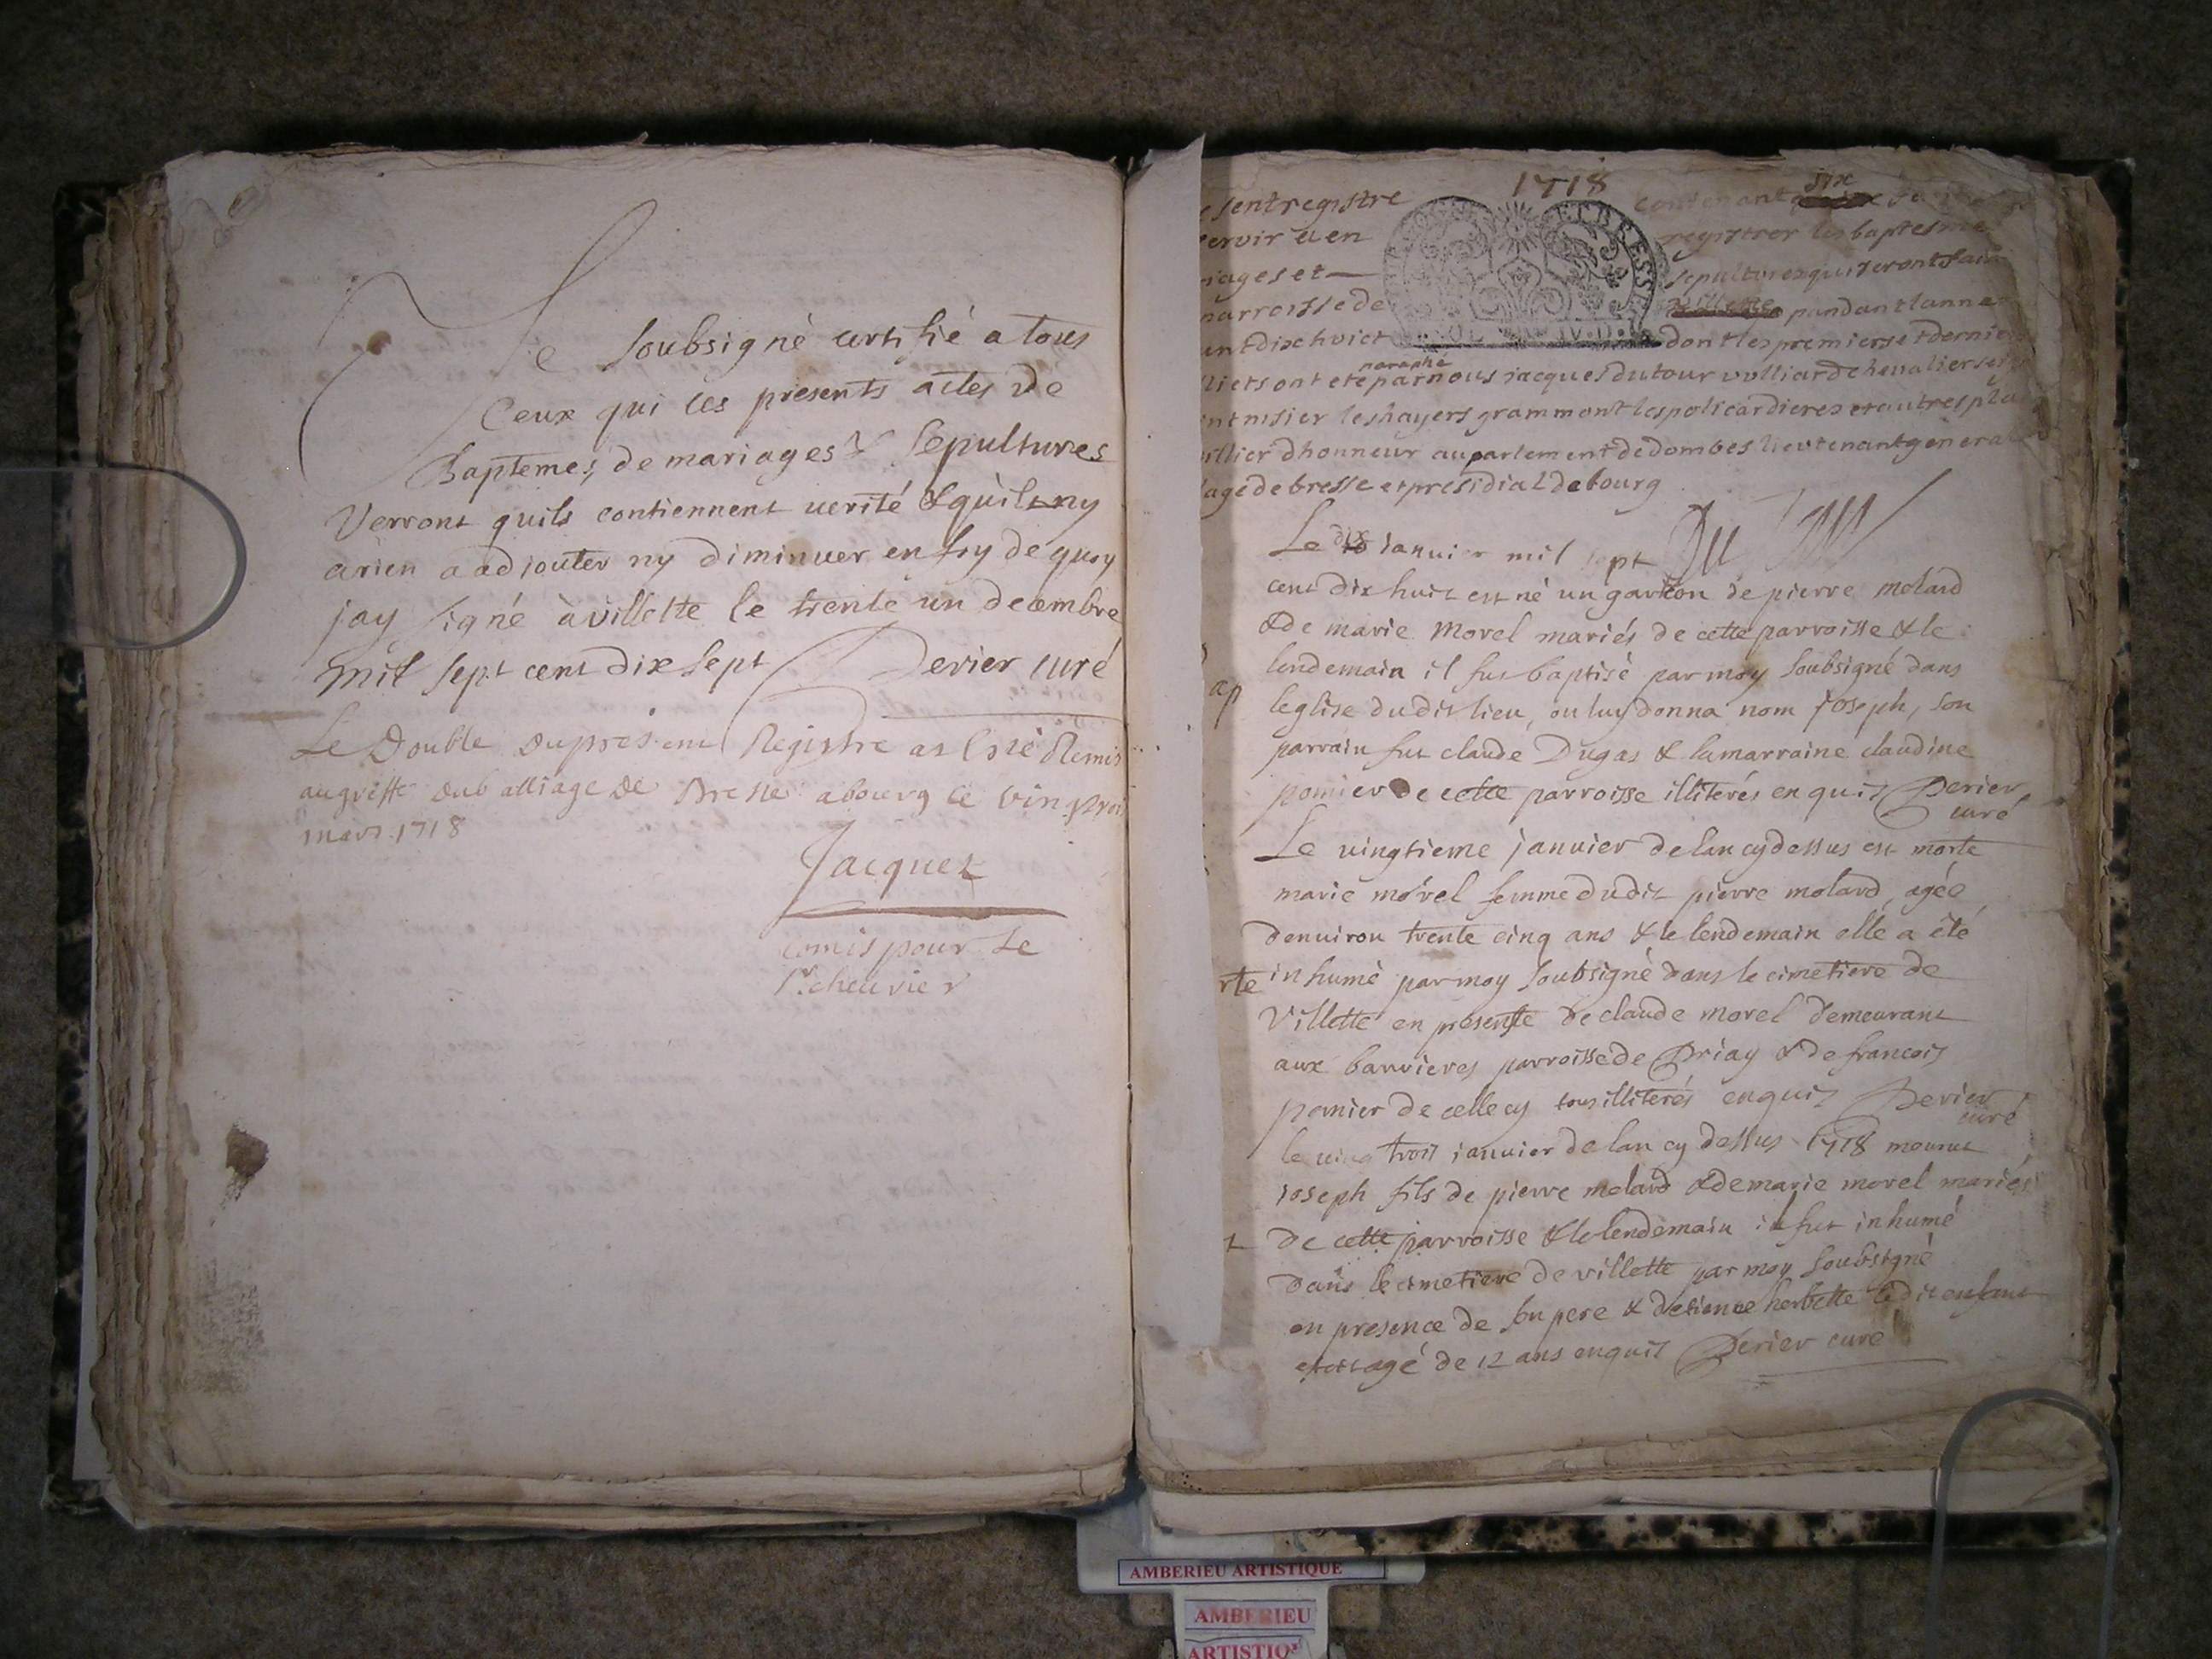 Je soubsigné certifié a tous
Ceux qui les presents actes de
Baptemes, de mariages & sepultures
Verront quils contiennent verité & quil ny
arien a adiouter ny diminuer en foy de quoy
jay signé a villette le trente un decembre
mil sept cent dix sept Derier curé
Le Double du present Registre a esté Remis
au greffe du balliage de Bresse a bourg ce vingt trois
mars 1718
Jacquet
comis pour le
Sr. cheurier
1718
sent registre contenant six
servir a en registrer les baptesme
riages et sepultures qui seront fai
parroisse de villette pandant lanne
ent dix huict dont les premiers et dernie
lliets ont ete paraphé par nous jacques dutour vulliard chevalier sei
nt nisier les hayers grammont les policardieres et autres pla
illier dhonneur au parlement de dombes lieutenant general
age de bresse et presidial de bourg
Le dix Ianuier mil sept Du Tour
cent dix huit est né un garcon de pierre molard
& de marie Morel mariés de cette parroisse & le
lendemain il fut baptisé par moy soubsigné dans
ap
leglise dudit lieu, on luy donna nom joseph, son
parrain fut claude Dugas & la marraine claudine
pomier de cette parroisse illiterés enquis Derier
curé
Le vingtieme januier de lan cy dessus est morte
marie morel femme dudit pierre molard, agée
denuiron trente cinq ans & le lendemain elle a été
rte inhumé par moy soubsigné dans le cimetiere de
Villette en presence de claude morel demeurant
aux barrieres parroisse de Priay & de francois
pomier de celle cy tous illiterés enquis Derier
curé
le ving trois ianuier de lan cy dessus 1718 mourut
ioseph fils de pierre molard & de marie morel mariés
t de cette parroisse & le lendemain il fut inhumé
dans le cimetiere de villette par moy soubsigné
en presence de son pere & detienne herbette ledit enfant
agé de 12 ans enquis Derier curé
AMBERIEU ARTISTIQUE
AMBERIEU
ARTISTIQ